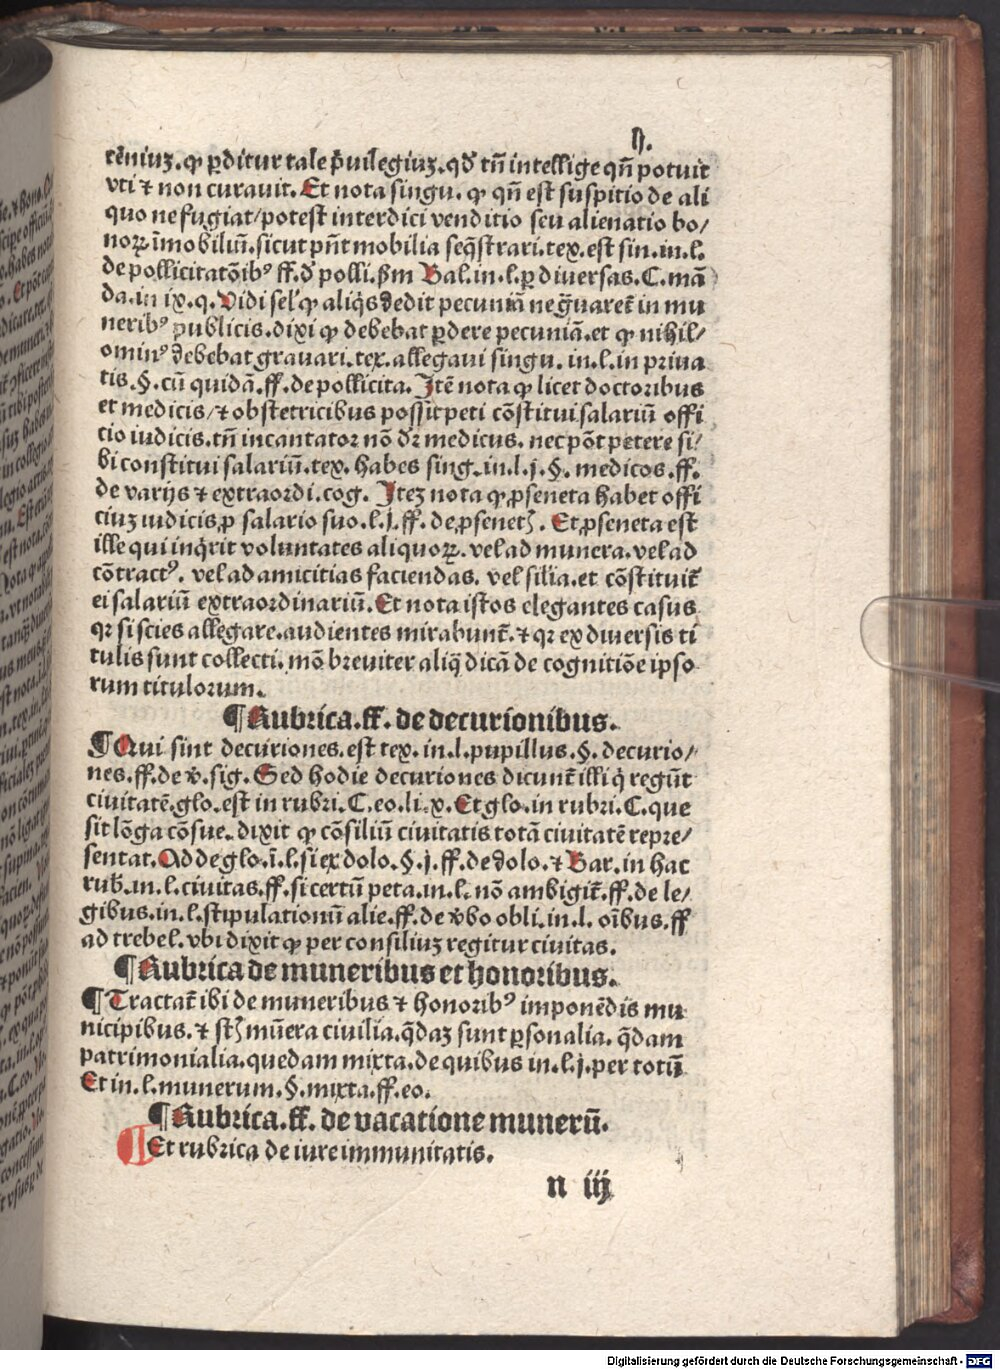 ij.
tēniuz.ꝙ ꝑditur tale p̄uilegiuz.qđ tn̄ intellige qn̄ potuit
vti ⁊ non curauit. Et nota singu. ꝙ qn̄ est suspitio de ali
quo ne fugiat/potest interdici venditio seu alienatio bo/
noꝝ īmobiliū.sicut pn̄t mobilia seq̄strari.tex.est sin.in.l.
de pollicitatōibꝰ ff.đ polli.ẜm Bal.in.l.ꝑ diuersas.C.mā
da.in ix.q.Vidi sel'ꝙ aliq̇s dedit pecuniā ne g̈uaret̄ in mu
neribꝰ publicis.dixi ꝙ debebat ꝑdere pecuniā.et ꝙ nihil/
ominꝰ debebat grauari.tex.allegaui singu.in.l.in priua
tis.§.cū quidā.ff.de pollicita. Itē nota ꝙ licet doctoribus
et medicis/⁊ obstetricibus possit̄ peti cōstitui salariū offi
cio iudicis.tn̄ incantator nō dr̄ medicus. nec pōt petere si/
bi constitui salariū.tex. habes sing.in.l.j.§. medicos.ff.
de varijs ⁊ extraordi.cog. Itez nota ꝙ ꝓseneta habet offi
ciuz iudicis ꝓ salario suo.l.j.ff.de ꝓseneth̄. Et ꝓseneta est
ille qui inq̇rit voluntates aliquoꝝ.vel ad munera.vel ad
cōtractꝰ. vel ad amicitias faciendas. vel silia.et cōstituit̄
ei salariū extraordinariū.Et nota istos elegantes casus
qꝛ si scies allegare.audientes mirabunt̄.⁊ qꝛ ex diuersis ti
tulis sunt collecti.mō breuiter aliq̄ dicā de cognitiōe ipso
rum titulorum.
¶Rubrica.ff. de decurionibus.
¶Qui sint decuriones.est tex.in.l.pupillus.§.decurio/
nes.ff.de v̄.sig. Sed hodie decuriones dicunt̄ illi q̇ regūt
ciuitatē.glo.est in rubri.C.eo.li.x.Et glo.in rubri.C.que
sit lōga cōsue. dixit ꝙ cōsiliū ciuitatis totā ciuitatē repre/
sentat.Adde glo.ī.l.si ex dolo.§.j.ff.de dolo.⁊ Bar.in hac
rub̄.in.l.ciuitas.ff.si certū peta.in.l.nō ambigit̄.ff.de le/
gibus.in.l.stipulationū alie.ff.de v̄bo obli.in.l. oībus.ff
ad trebel.vbi dixit ꝙ per consiliuz regitur ciuitas.
¶Rubrica de muneribus et honoribus.
¶Tractat̄ ibi de muneribus ⁊ honoribꝰ imponēdis mu
nicipibus.⁊ sth̄ mūera ciuilia.q̄daz sunt ꝑsonalia. q̄dam
patrimonialia.quedam mixta.de quibus in.l.j.per totū
Et in.l.munerum.§.mixta.ff.eo.
¶Rubrica.ff. de vacatione munerū.
¶Et rubrica de iure immunitatis.
n iij
Digitalisierung gefördert durch die Deutsche Forschungsgemeinschaft - DFG